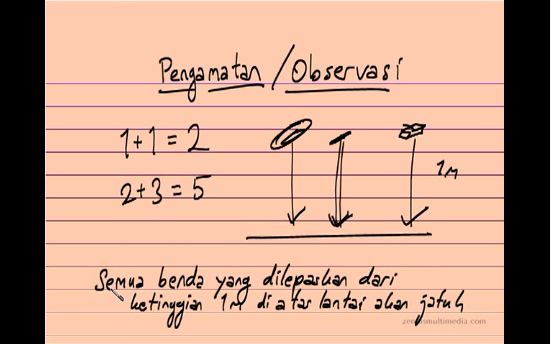 Pengamatan / Observasi
1+1 = 2
2+3 = 5
1M
Semua benda yang dilepaskan dari
ketinggian 1M di atas lantai akan jatuh
zeniusmultimedia.com